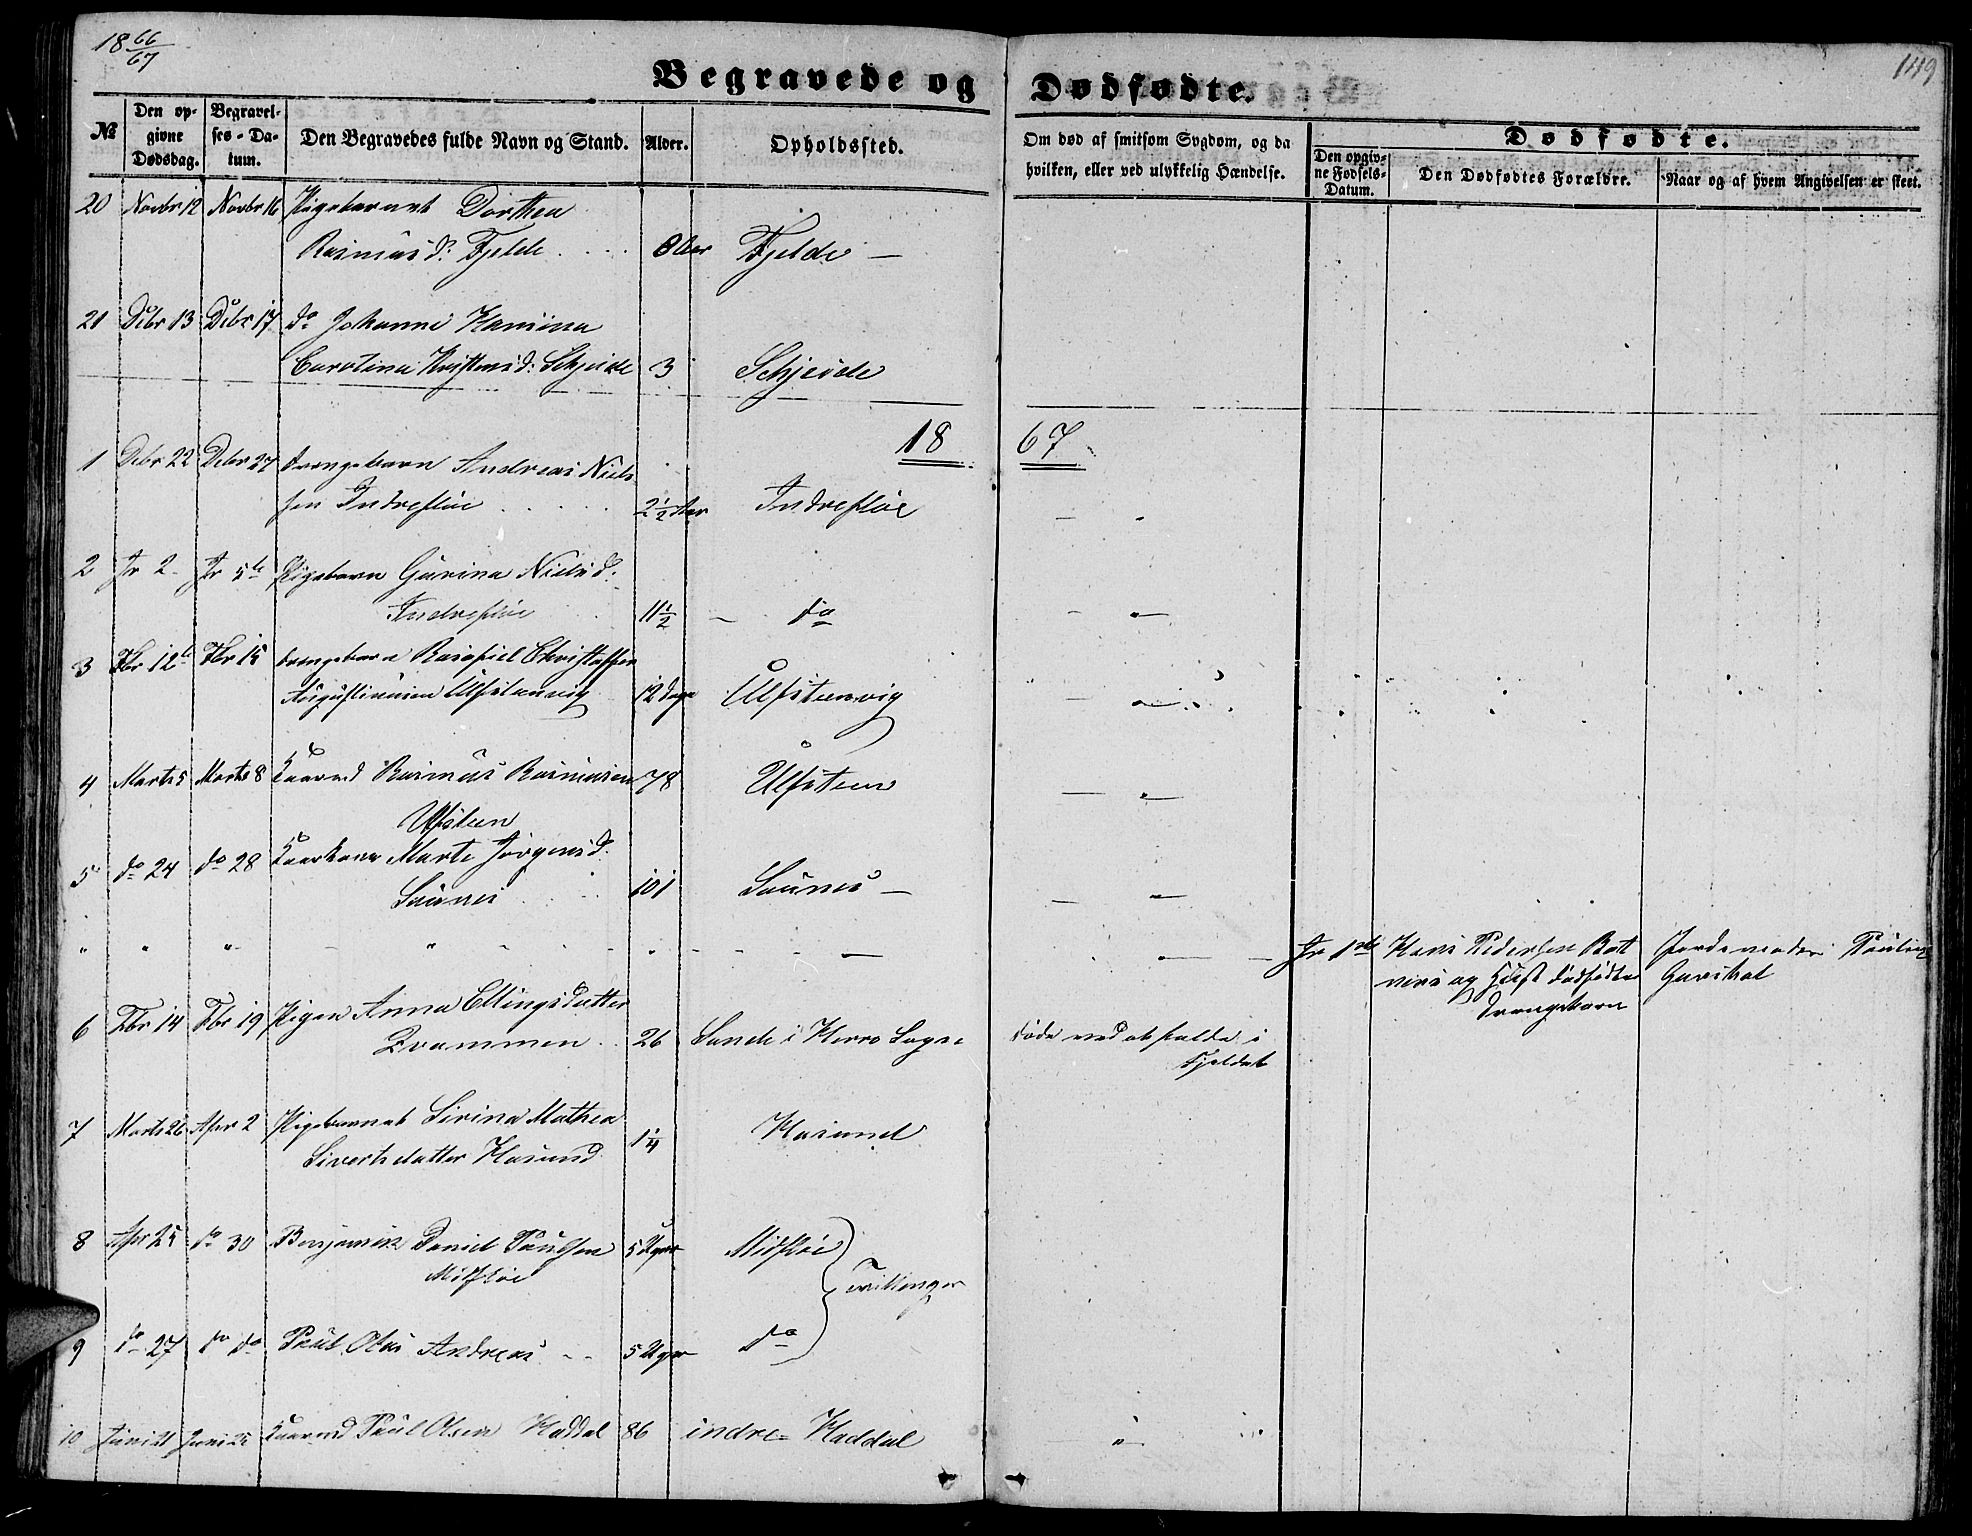 18 66/67
149
Begravede og Dødfødte.
№
Den opgivne Dødsdag.
Begravelses-Datum.
Den Begravedes fulde Navn og Stand.
Alder.
Opholdssted.
Om død af smitsom Sygdom, og da hvilken, eller ved ulykkelig Hændelse.
Dødfødte.
Den opgivne Fødsels-Datum.
Den Dødfødtes Forældre.
Naar og af hvem Angivelsen er skeet.
20 Novbr 12 Novbr 16 Pigebarnet Dorthea
Rasmusd: Fjelde . . . 8 Aar Fjelde —
21 Debr 13 Debr 17 do Johanne Hansina
Carolina d: Schjeide 3 Schjeide
18 67
1 Debr 22 Debr 27 Drengebarn Andreas Niel-
sen Indrefløe . . . . . 2½ Aar Indrefløe — "
2 Jr 2 Jr 5te Pigebarn Gurina Nielsd:
Indrefløe 11½ — do — " —
3 Fbr 12te Fbr 15 Drengebarn Christoffer
Ulfstenvig 12 Dage Ulfstenvig — " —
4 Marts 5 Marts 8 Kaarmd Rasmus Rasmusen 78 Ulfsteen — " —
Ulfsteen
5 do 24 do 28 Kaarkone Marte Jørgensd:
Saunes . . . 101 Saunes — — " —
" " " " — — Jr 1ste Hans Pedersen Bot- Jordemoder
nes og Hust dødfødte Gurskot
Drengebarn
6 Fbr 14 Fbr 19 Pigen Anna Ellingsdatter
Drammen . . 26 Sande i Herro Sogn Døde ved at falde i
Fjeldet
7 Marts 26 Apr 2 Pigebarnet Sirina Mathea
Sivertsdatter Hasund 1¼ Hasund
8 Apr 25 do 30 Benjamin Daniel Paulsen 5 Uger Midfløe
Midfløe
Trillinger
9 do 27 do do Paul Olai Andreas . - - 5 Uger do
10 Juni 21 Juni 25 Kaarmd Paul Olsen Haddal 86 indre Haddal "